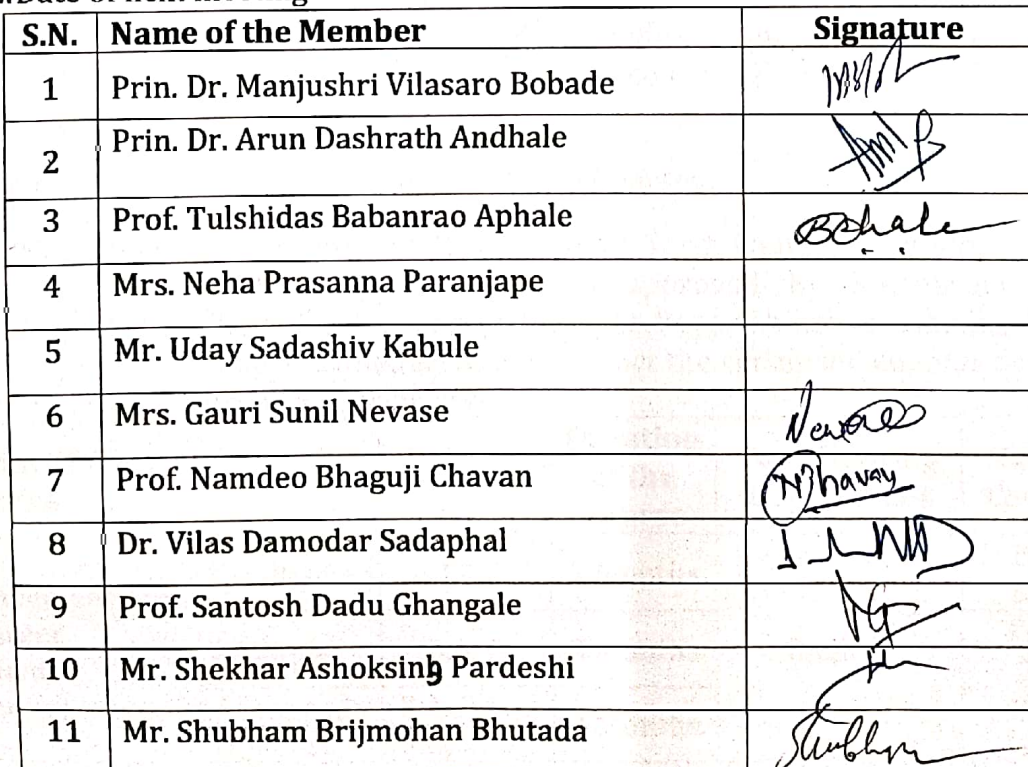 Date of next meeting
S.N. Name of the Member Signature
1 Prin. Dr. Manjushri Vilasaro Bobade
2 Prin. Dr. Arun Dashrath Andhale
3 Prof. Tulshidas Babanrao Aphale
4 Mrs. Neha Prasanna Paranjape
5 Mr. Uday Sadashiv Kabule
6 Mrs. Gauri Sunil Nevase
7 Prof. Namdeo Bhaguji Chavan
8 Dr. Vilas Damodar Sadaphal
9 Prof. Santosh Dadu Ghangale
10 Mr. Shekhar Ashoksinh Pardeshi
11 Mr. Shubham Brijmohan Bhutada Shubham